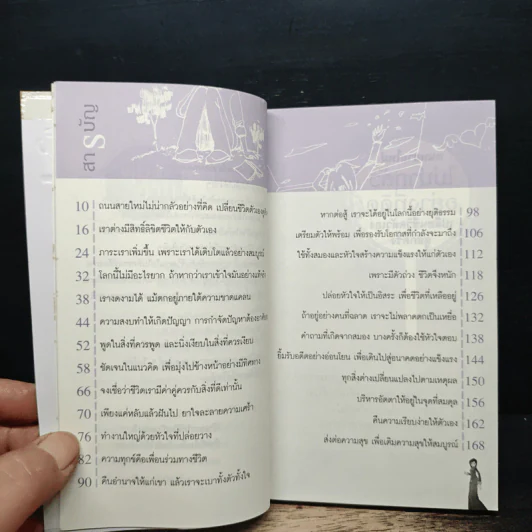 สารบัญ
10 ถนนสายใหม่ไม่น่ากลัวอย่างที่คิด เปลี่ยนชีวิตด้วย
16 เราต่างมีสิทธิ์ลิขิตชีวิตให้กับตัวเอง
24 ภาระเราเพิ่มขึ้น เพราะเราได้เติบโตแล้วอย่างสมบูรณ์
32 โลกนี้ไม่มีอะไรยาก ถ้าหากว่าเราเข้าใจมันอย่าง
38 เรางดงามได้ แม้ตกอยู่ภายใต้ความขาดแคลน
44 ความสงบทำให้เกิดปัญญา การกำจัดปัญหาต้อง
52 พูดในสิ่งที่ควรพูด และนิ่งเงียบในสิ่งที่ควรเงียบ
58 ชัดเจนในแนวคิด เพื่อมุ่งไปข้างหน้าอย่างมีทิศทาง
66 จงเชื่อว่าชีวิตเรามีค่าคู่ควรกับสิ่งที่ดีเท่านั้น
70 เพียงแค่หลับแล้วฝันไป ยาใจละลายความเศร้า
76 ทำงานใหญ่ด้วยหัวใจที่ปล่อยวาง
82 ความทุกข์คือเพื่อนร่วมทางชีวิต
90 คืนอำนาจให้แก่เขา แล้วเราจะเบาทั้งตัวทั้งใจ
หากต่อสู้ เราจะได้อยู่ในโลกนี้อย่างยุติธรรม 98
เตรียมตัวให้พร้อม เพื่อรองรับโอกาสที่กำลังจะมาถึง 106
ใช้ทั้งสมองและหัวใจสร้างความแข็งแรงให้แก่ตัวเอง 112
เพราะมีตัวถ่วง ชีวิตจึงหนัก 118
ปล่อยหัวใจให้เป็นอิสระ เพื่อชีวิตที่เหลืออยู่ 126
ถ้าอยู่อย่างคนที่ฉลาด เราจะไม่พลาดตกเป็นเหยื่อ 132
คำถามที่เกิดจากสมอง บางครั้งก็ต้องใช้หัวใจตอบ 138
ยิ้มรับอดีตอย่างอ่อนโยน เพื่อเดินไปสู่อนาคตอย่างแข็งแรง 144
ทุกสิ่งต่างเปลี่ยนแปลงไปตามเหตุผล 150
บริหารอัตตาให้อยู่ในจุดที่สมดุล 156
คืนความเรียบง่ายให้ตัวเอง 162
ส่งต่อความสุข เพื่อเติมความสุขให้สมบูรณ์ 168